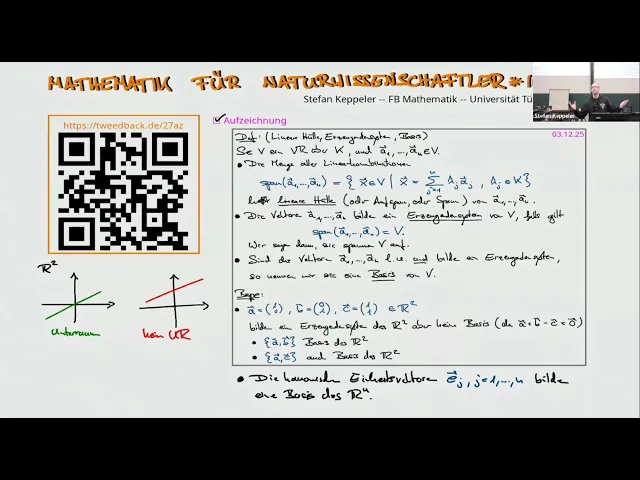 MATHEMATIK FÜR NATURWISSENSCHAFTLER*I
Stefan Keppeler -- FB Mathematik -- Universität Tü
Stefan Keppeler
https://tweedback.de/27az
Aufzeichnung
03.12.25
Def: (Lineare Hülle, Erzeugendensystem, Basis)
Sei V ein VR über K, und a⃗₁,...,a⃗ₙ ∈ V.
• Die Menge aller Linearkombinationen
span(a⃗₁,...,a⃗ₙ) = { x⃗ ∈ V | x⃗ = ∑ⱼ₌₁ⁿ λⱼ a⃗ⱼ , λⱼ ∈ K }
heißt lineare Hülle (oder Aufspann, oder Span) von a⃗₁,...,a⃗ₙ.
• Die Vektoren a⃗₁,...,a⃗ₙ bilde ein Erzeugendensystem von V, falls gilt
span(a⃗₁,...,a⃗ₙ) = V.
Wir sagen dann, sie spannen V auf.
• Sind die Vektoren a⃗₁,...,a⃗ₙ l.u. und bilde ein Erzeugendensystem,
so nennen wir sie eine Basis von V.
Bspe:
• a⃗ = (1 0), b⃗ = (0 1), c⃗ = (1 1) ∈ ℝ²
bilde ein Erzeugendensystem des ℝ² aber keine Basis (da a⃗ + b⃗ − c⃗ = 0⃗)
• {a⃗, b⃗} Basis des ℝ²
• {a⃗, c⃗} auch Basis des ℝ²
• Die kanonischen Einheitsvektoren e⃗ⱼ, j=1,...,n bilde
eine Basis des ℝⁿ.
ℝ²
Unterraum
kein UR